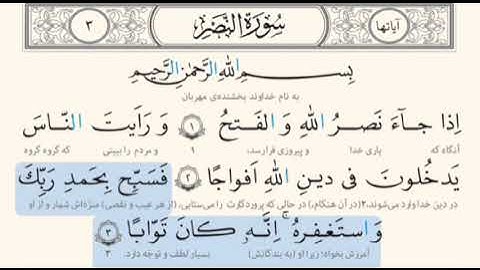 آیاتها سُورَةُ النَّصْر ۳
بِسْمِ اللهِ الرَّحْمٰنِ الرَّحِیمِ
به نام خداوند بخشنده‌ی مهربان
اِذا جـآءَ نَصْرُ اللهِ وَ الْفَتْحُ ۱ وَ رَاَیْتَ النّاسَ
آنگاه که یاری خدا و پیروزی فرارسد، ۱ و مردم را ببینی که گروه گروه
یَدْخُلُونَ فی دینِ اللهِ اَفْواجًا ۲ فَسَبِّحْ بِحَمْدِ رَبِّكَ
در دین خدا وارد می‌شوند،۲ (در آن هنگام،) در حالی که پروردگارت را می‌ستایی، (از هر عیب و نقصی) منزّه‌اش شمار و از او
وَ اسْتَغْفِرْهُ ۚ اِنَّهٗ كانَ تَوّابًا ۳
آمرزش بخواه؛ زیرا او (به بندگانش) بسیار لطف و توجه دارد. ۳